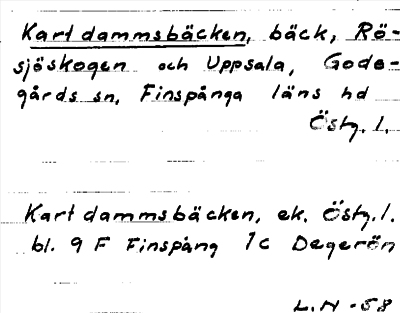 Kartdammsbäcken, bäck, Rö-
sjöskogen och Uppsala, Gode-
gårds sn, Finspånga läns hd
Östg. l.
Kartdammsbäcken, ek. Östg. l.
bl. 9 F Finspång 7c Degerön
L.N -58